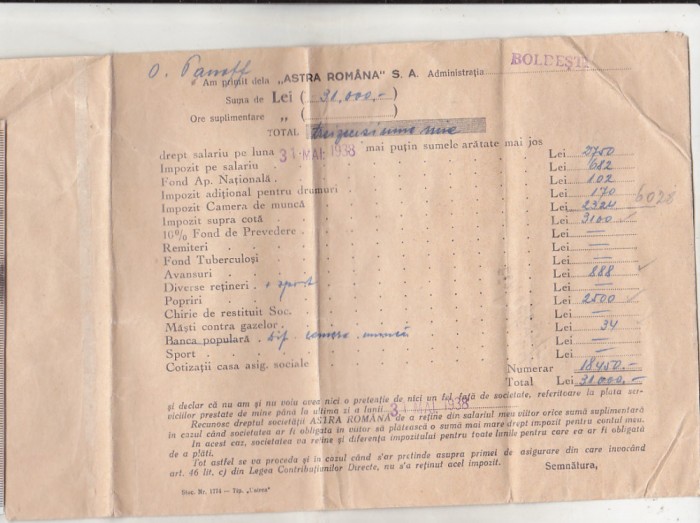 O. Panoff
Am primit dela „ASTRA ROMÂNA" S. A. Administrația BOLDEȘTI
Suma de Lei ( 31.000.- )
Ore suplimentare „ ( )
TOTAL treizecisiuna mie
drept salariu pe luna 31 MAI. 1938 mai puțin sumele arătate mai jos
Impozit pe salariu Lei 2750
Fond Ap. Națională Lei 682
Impozit adițional pentru drumuri Lei 102
Impozit Camera de muncă Lei 170
Impozit supra cotă Lei 2324 6028
10% Fond de Prevedere Lei 3100
Remiteri Lei —
Fond Tuberculoși Lei —
Avansuri Lei —
Diverse rețineri sport Lei 888
Popriri Lei —
Chirie de restituit Soc. Lei 2500
Măști contra gazelor Lei —
Banca populară Dif. camera muncă Lei 34
Sport Lei —
Cotizații casa asig. sociale Lei —
Numerar 18450.-
Total Lei 31000.-
și declar că nu am și nu voiu avea nici o pretenție de nici un fel față de societate, referitoare la plata ser-
viciilor prestate de mine până la ultima zi a lunii 31 MAI. 1938
Recunosc dreptul societății ASTRA ROMÂNA de a reține din salariul meu viitor orice sumă suplimentară
în cazul când societatea ar fi obligată în viitor să plătească o sumă mai mare drept impozit pentru contul meu.
In acest caz, societatea va reține și diferența impozitului pentru toate lunile pentru care ea ar fi obligată
de a plăti.
Tot astfel se va proceda și în cazul când s'ar pretinde asupra primei de asigurare din care invocând
art. 46 lit, c) din Legea Contribuțiunilor Directe, nu s'a reținut acel impozit.
Semnătura,
Stoc. Nr. 1774 — Tip.